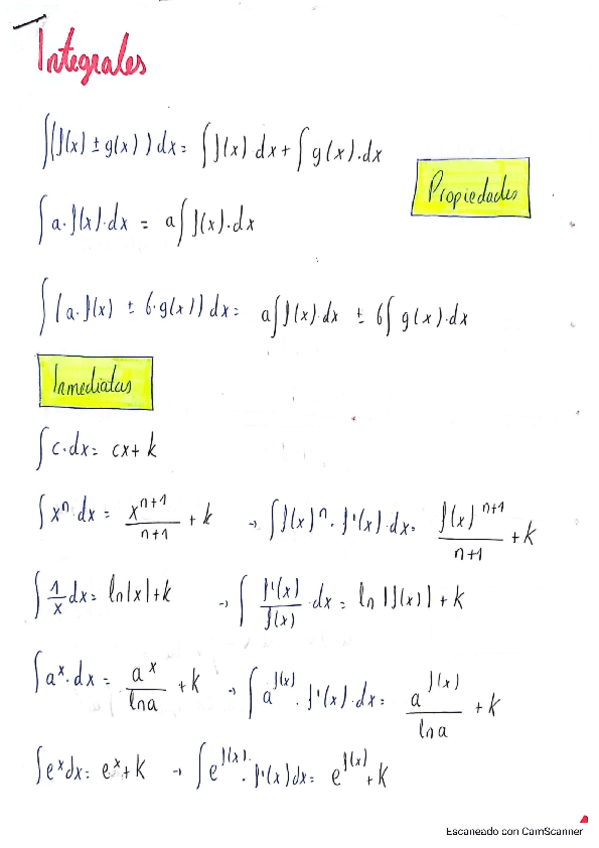 Integrales
∫(f(x) ± g(x)) dx = ∫f(x) dx + ∫g(x).dx
Propiedades
∫a.f(x).dx = a∫f(x).dx
∫(a.f(x) ± b.g(x)) dx = a∫f(x).dx ± b∫g(x).dx
Inmediatas
∫c.dx = cx + k
∫xⁿ.dx = xⁿ⁺¹/(n+1) + k → ∫f(x)ⁿ.f'(x).dx = f(x)ⁿ⁺¹/(n+1) + k
∫1/x dx = ln|x| + k → ∫f'(x)/f(x) .dx = ln|f(x)| + k
∫aˣ.dx = aˣ/ln a + k → ∫a^f(x).f'(x).dx = a^f(x)/ln a + k
∫eˣdx = eˣ + k → ∫e^f(x).f'(x)dx = e^f(x) + k
Escaneado con CamScanner